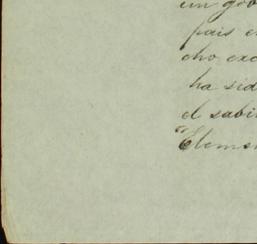 un go
pais e
cho exc
ha sid
el sabi
"Elem